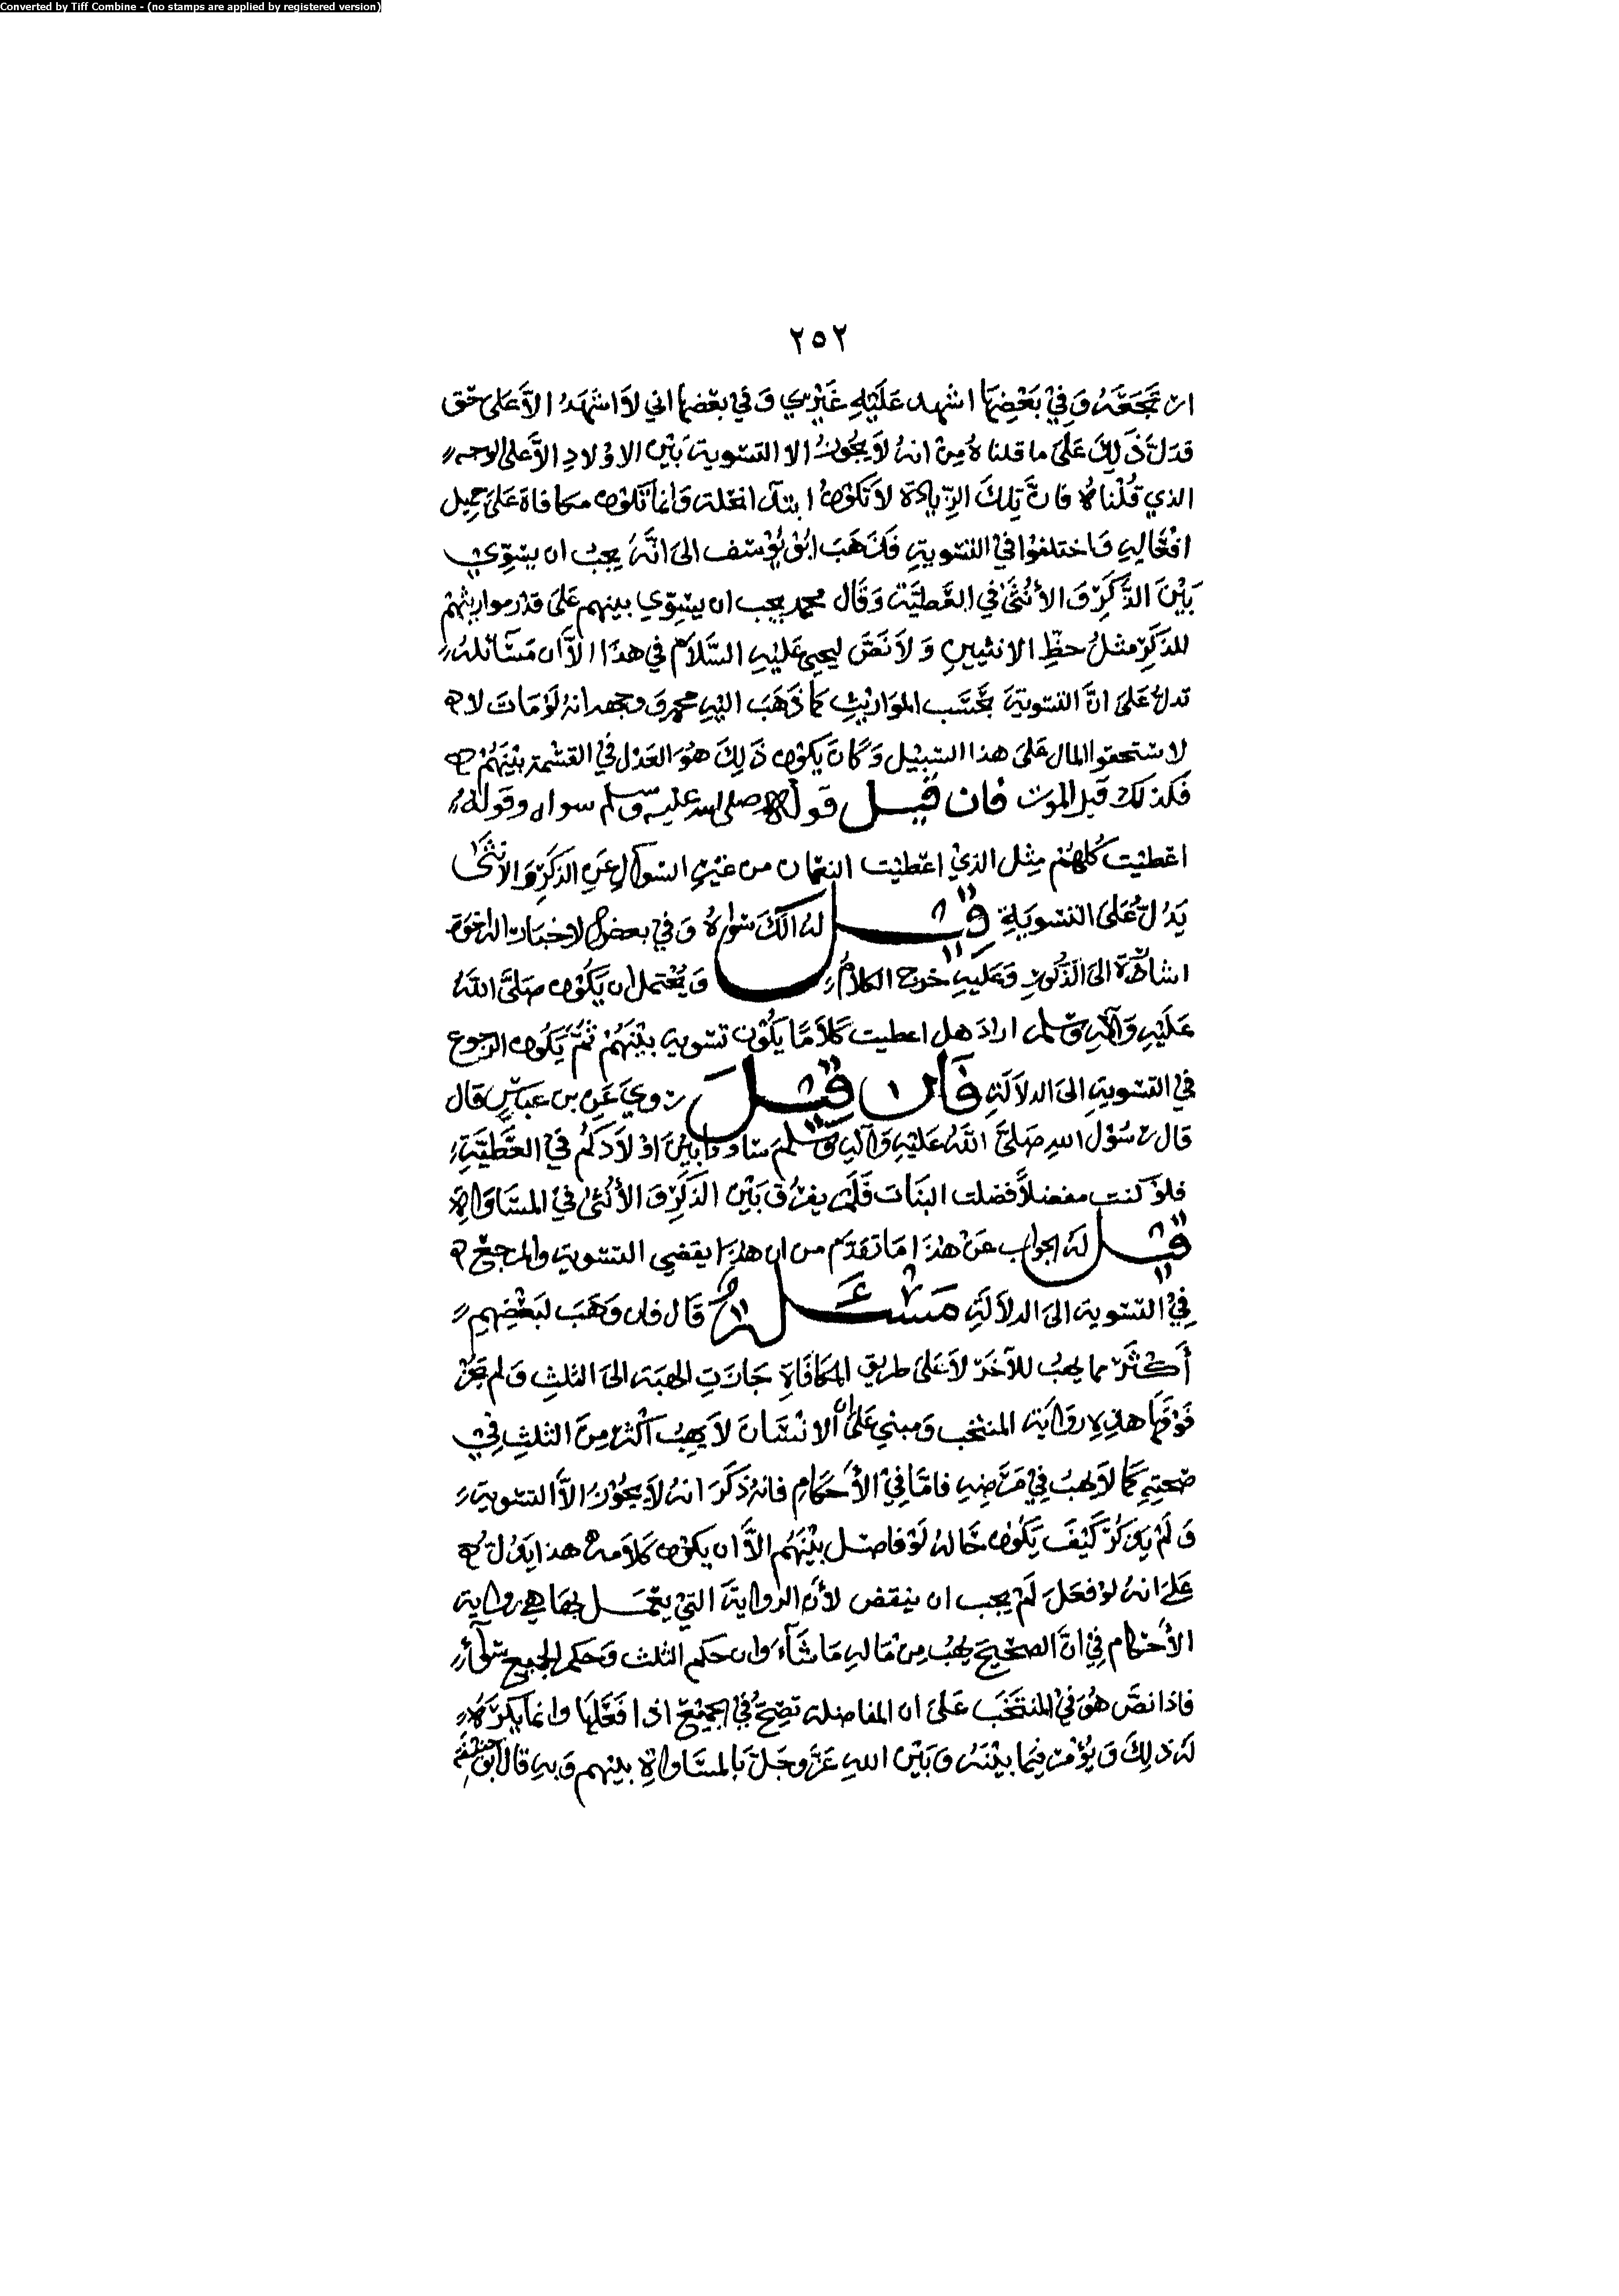 Converted by Tiff Combine - (no stamps are applied by registered version)
٢٥٢
ان تجعَهُ وَفِيْ بَعْضِهَا اشهد عَلَيْهِ غَيْرِي وَفي بعْضها اني لاَ اشهَدُ الاَّ عَلى حَق
فدَلّ ذَلِكَ عَلَى ما قلناهُ مِنْ انهُ لاَ يجُوزُ الا التسوية بَيْن الاوْلادِ الاَّ على الوجه
الذي قُلْناهُ فانَّ تِلكَ الزّيادَة لاَ تكوُنُ ابتدآ انعلة وَانما تَكون مكافاة عَلى جميل
افعَالهِ وَاختلفوا في التسويةِ فَذهَبَ ابُو يُوْسُف الى انَّهُ يجبُ ان يسَوّي
بَيْنَ الذَّكَرِ وَالأنْثَى في العَطيَّة وَقَال محمد يجب ان يسَوّي بينهم عَلى قدْر مواريثهمْ
للذكَرِ مثلُ حظّ الانثيين وَلاَ نَصّ ليحيى عَليْهِ السَّلاَمْ في هذا الاَّ ان مَسَآئلهُ
تدلّ عَلى انَّ التسويَة بحَسَب الموَاريْثِ كمَا ذَهَبَ اليْهِ محمد وَوجهه انهُ لوْ مَاتَ لا
لاستحقوا المال عَلى هذا السّبيْل وَكانَ يكون ذَلِكَ هُوَ العَدْل فيْ القسْمة بيْنَهُمْ
فَكذلك قبل الموت فان قيل قوله صلى الله عليه وسلم سواه وقوله
اعْطيْت كُلهُمْ مِثل الذيْ اعْطيْت النعمان من غيْرِ السّوآل عَن الذكَرِ وَالانثى
يَدُلّ عَلى التسْويَةِ قيل لهُ الكَ سواهُ وَفي بعض الاخبار
اشارة الى الذكورِ وَعَليهِ خرج الكلامُ وَيُحْتمل ان يَكُون صَلىَّ اللهُ
عَلَيْهِ وَآلهِ وَسَلم ارادَ هل اعطيت كَلاَمَا يكُوْن تسْوية بيْنَهُمْ ثُمَّ يَكُون الرجوع
في التسْويةِ الى الدلاَلَةِ فان قيل رُويَ عَن بن عبَاسٍ قال
قال رسُوْل اللهِ صَلىَّ اللهُ عَليْهِ وَآلهِ وَسلمْ ساووا بَيْنَ اوْلاَدكُمْ فيْ العَطيَّةِ
فلوْ كنت مفضلاً فضلت البنَات فَلَمْ يفرُق بَيْن الذكَرِ وَالأنْثى في المسَاوَاةِ
قيل لهُ الجواب عَنْ هٰذَا مَا تقدّم من ان هٰذا يقضي التسْوية والمرجعْ
فِيْ التسْوية الى الدلاَلَةِ مَسْئَلة قَال فان وَهَبَ لبَعْضِهمِ
أَكْثَرَ مما يهبُ للآخَرِ لاَ عَلى طريق المكَافَاةِ جَازَتِ الهبَة الى الثلثِ وَلم تجزْ
فوْقهَا هذهِ روَايَة المنتخب وَمبني عَلى ان الانسَانَ لاَ يَهبُ اكْثر مِنَ الثلثِ فِيْ
صحتهِ كمَا لاَ يهبُ فِيْ مَرَضهِ فامَّا في الأحْكَامِ فانهُ ذَكَرَ انهُ لاَ يجُوْزُ الاَّ التسْوية
وَلَمْ يذكُرْ كَيْفَ يَكُون حَالهُ لوْ فاضل بيْنَهُم الاَّ ان يكوْن كَلاَمهُ هذا يدُلّ
عَلى انهُ لوْ فعَلَ لَمْ يجب ان ينقض لأنّ الروايَة التيْ يعْمَل بهَا هي رواية
الأحْكام فِيْ انَّ الصحيْحَ يهبُ مِنْ مَالهِ مَا شَآءَ وَان حكم الثلث وَحكم الجميع سَوآء
فاذا نصَّ هُوَ في المنتخَب عَلى ان المفاضلة تصحّ فيْ الجميْعْ اذا فَعَلهَا وانما يكرَهُ
لهُ ذلِكَ وَيُؤْمَر فِيمَا بيْنَهُ وَبَيْن اللهِ عَزّ وَجَلّ بالمسَاوَاةِ بينهم وَبهِ قال ابو حنيفة